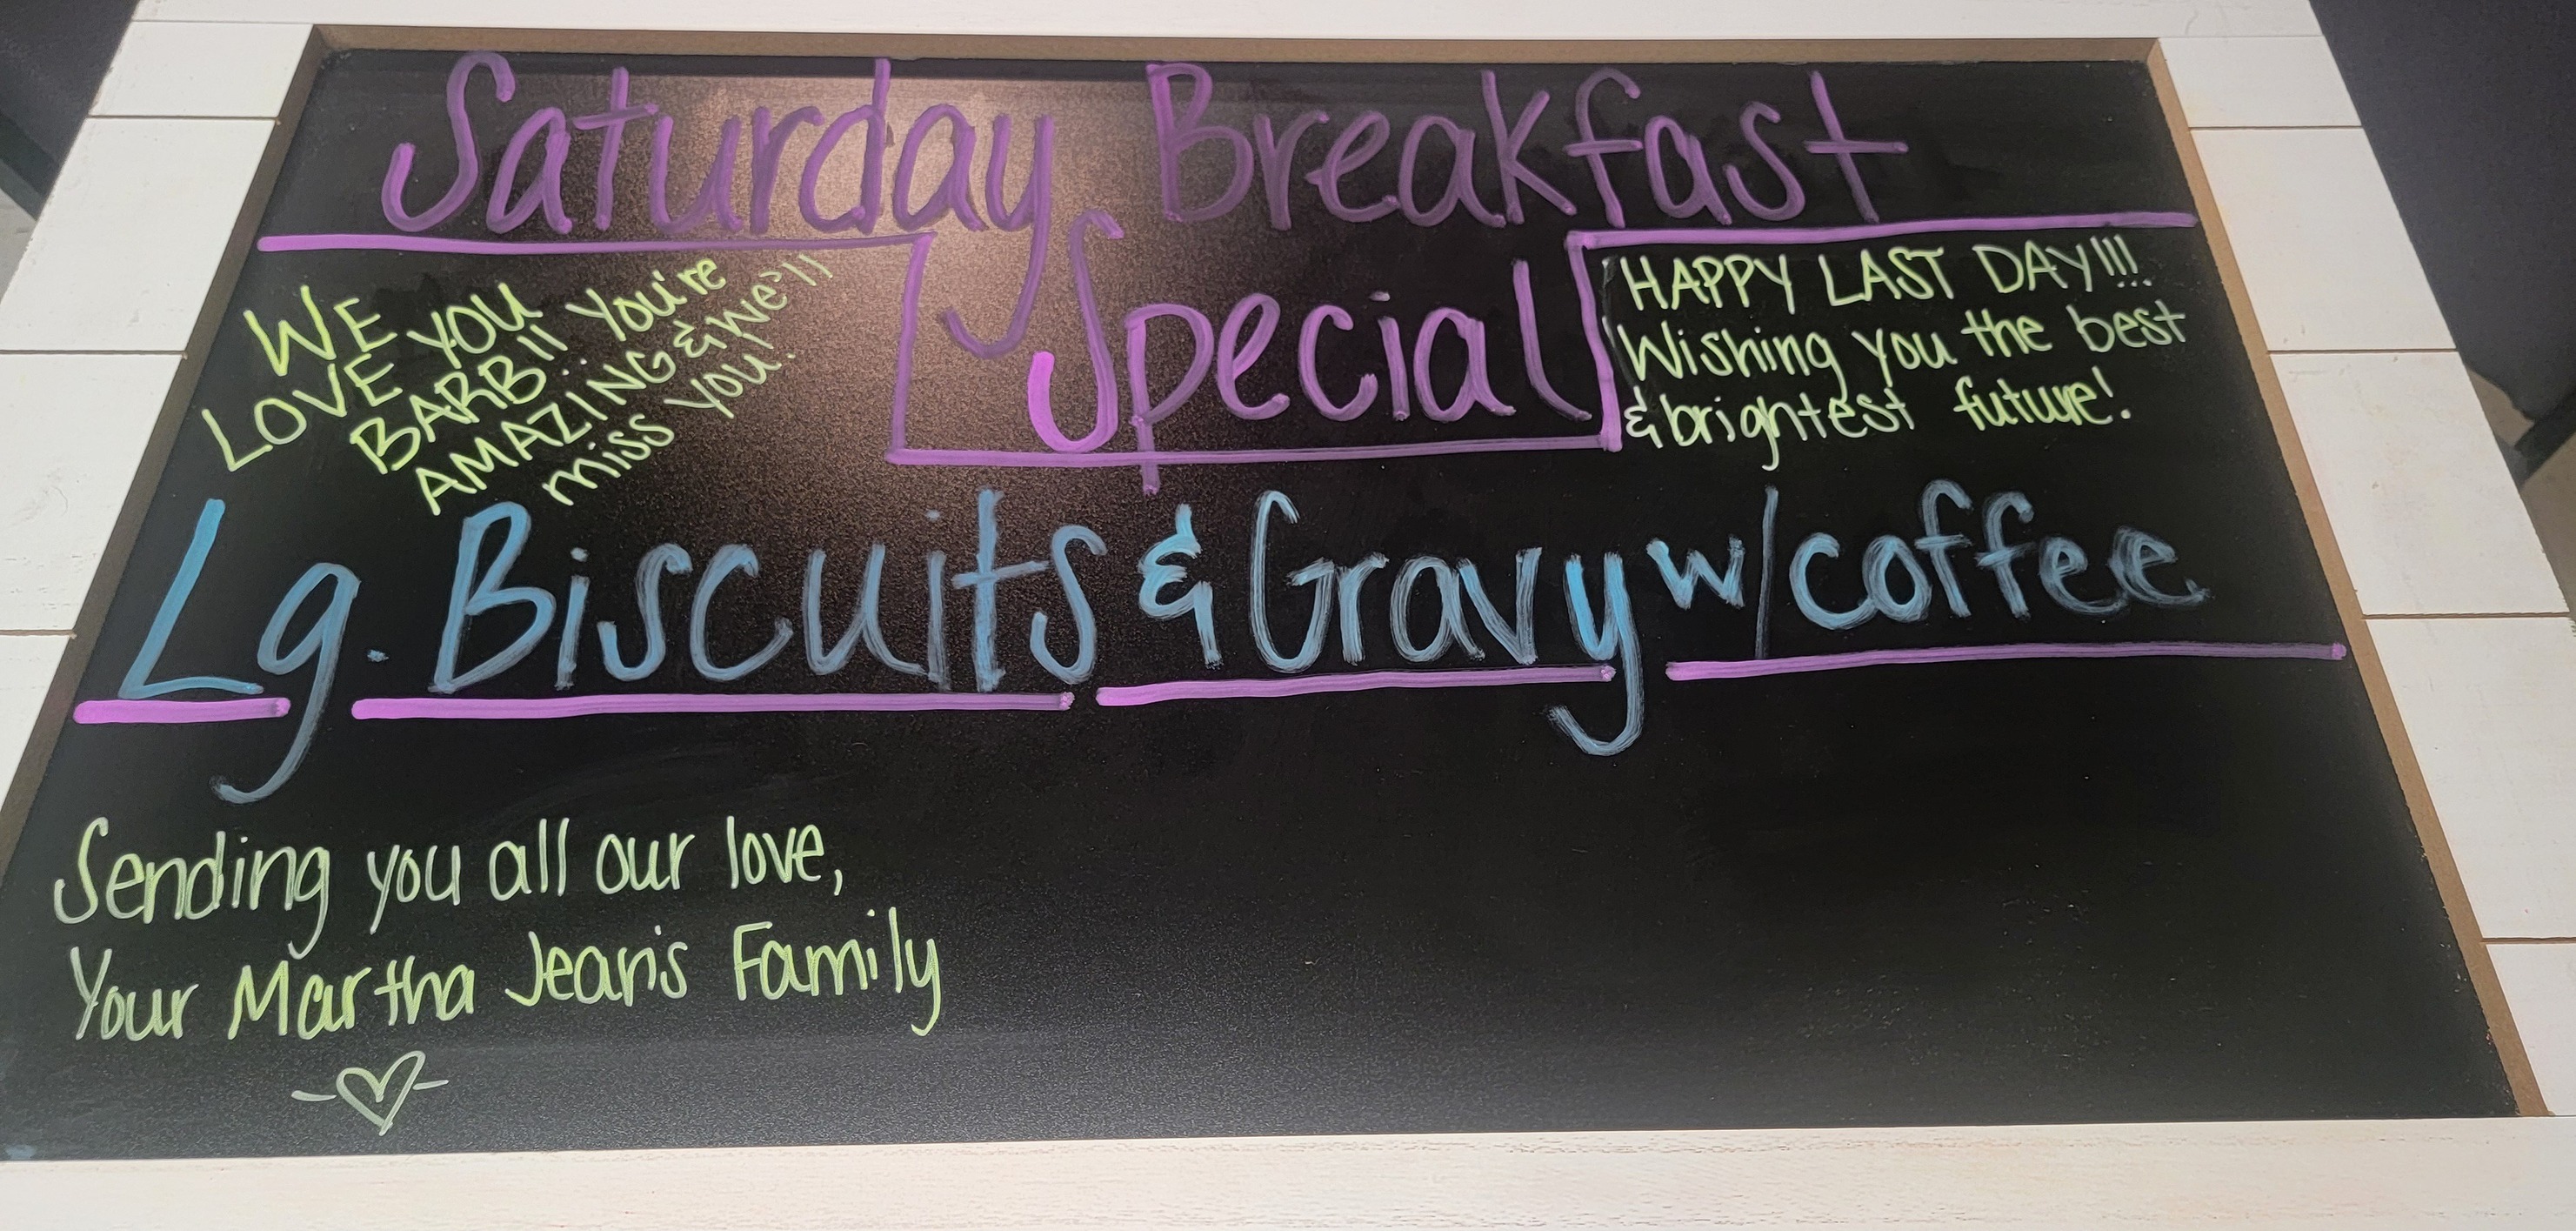 Saturday Breakfast
Special
WE
LOVE YOU
BARB!! You're
AMAZING & we'll
miss you!
HAPPY LAST DAY!!!
Wishing you the best
& brightest future!
Lg. Biscuits & Gravy w/ coffee
Sending you all our love,
Your Martha Jean's Family